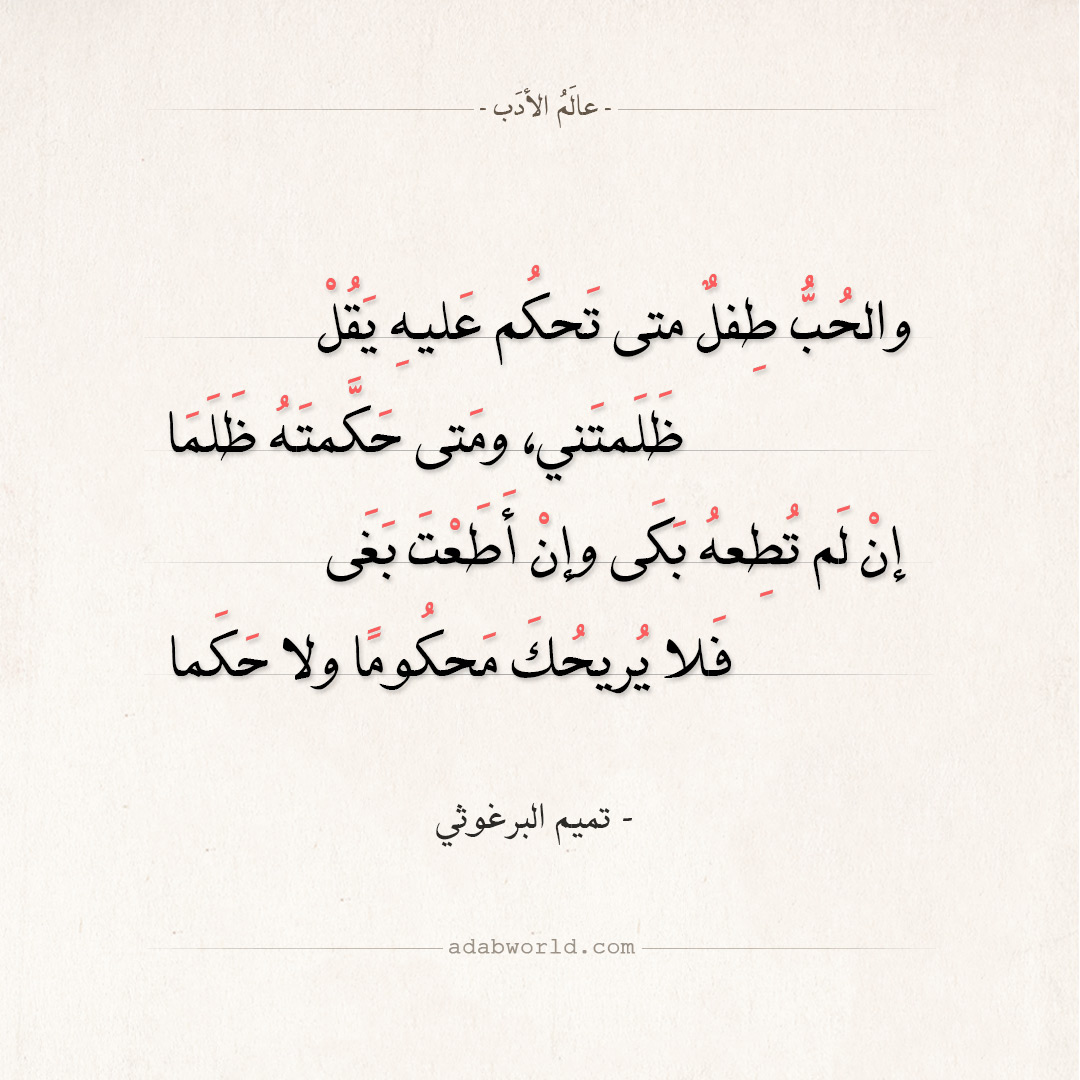 - عالَمُ الأدَب -
والحُبُّ طِفلٌ متى تَحكُم عَليهِ يَقُلْ
ظَلَمتَني، ومَتى حَكَّمتَهُ ظَلَمَا
إنْ لَم تُطِعهُ بَكَى وإنْ أَطَعْتَ بَغَى
فَلا يُريحُكَ مَحكُومًا ولا حَكَما
- تميم البرغوثي
adabworld.com